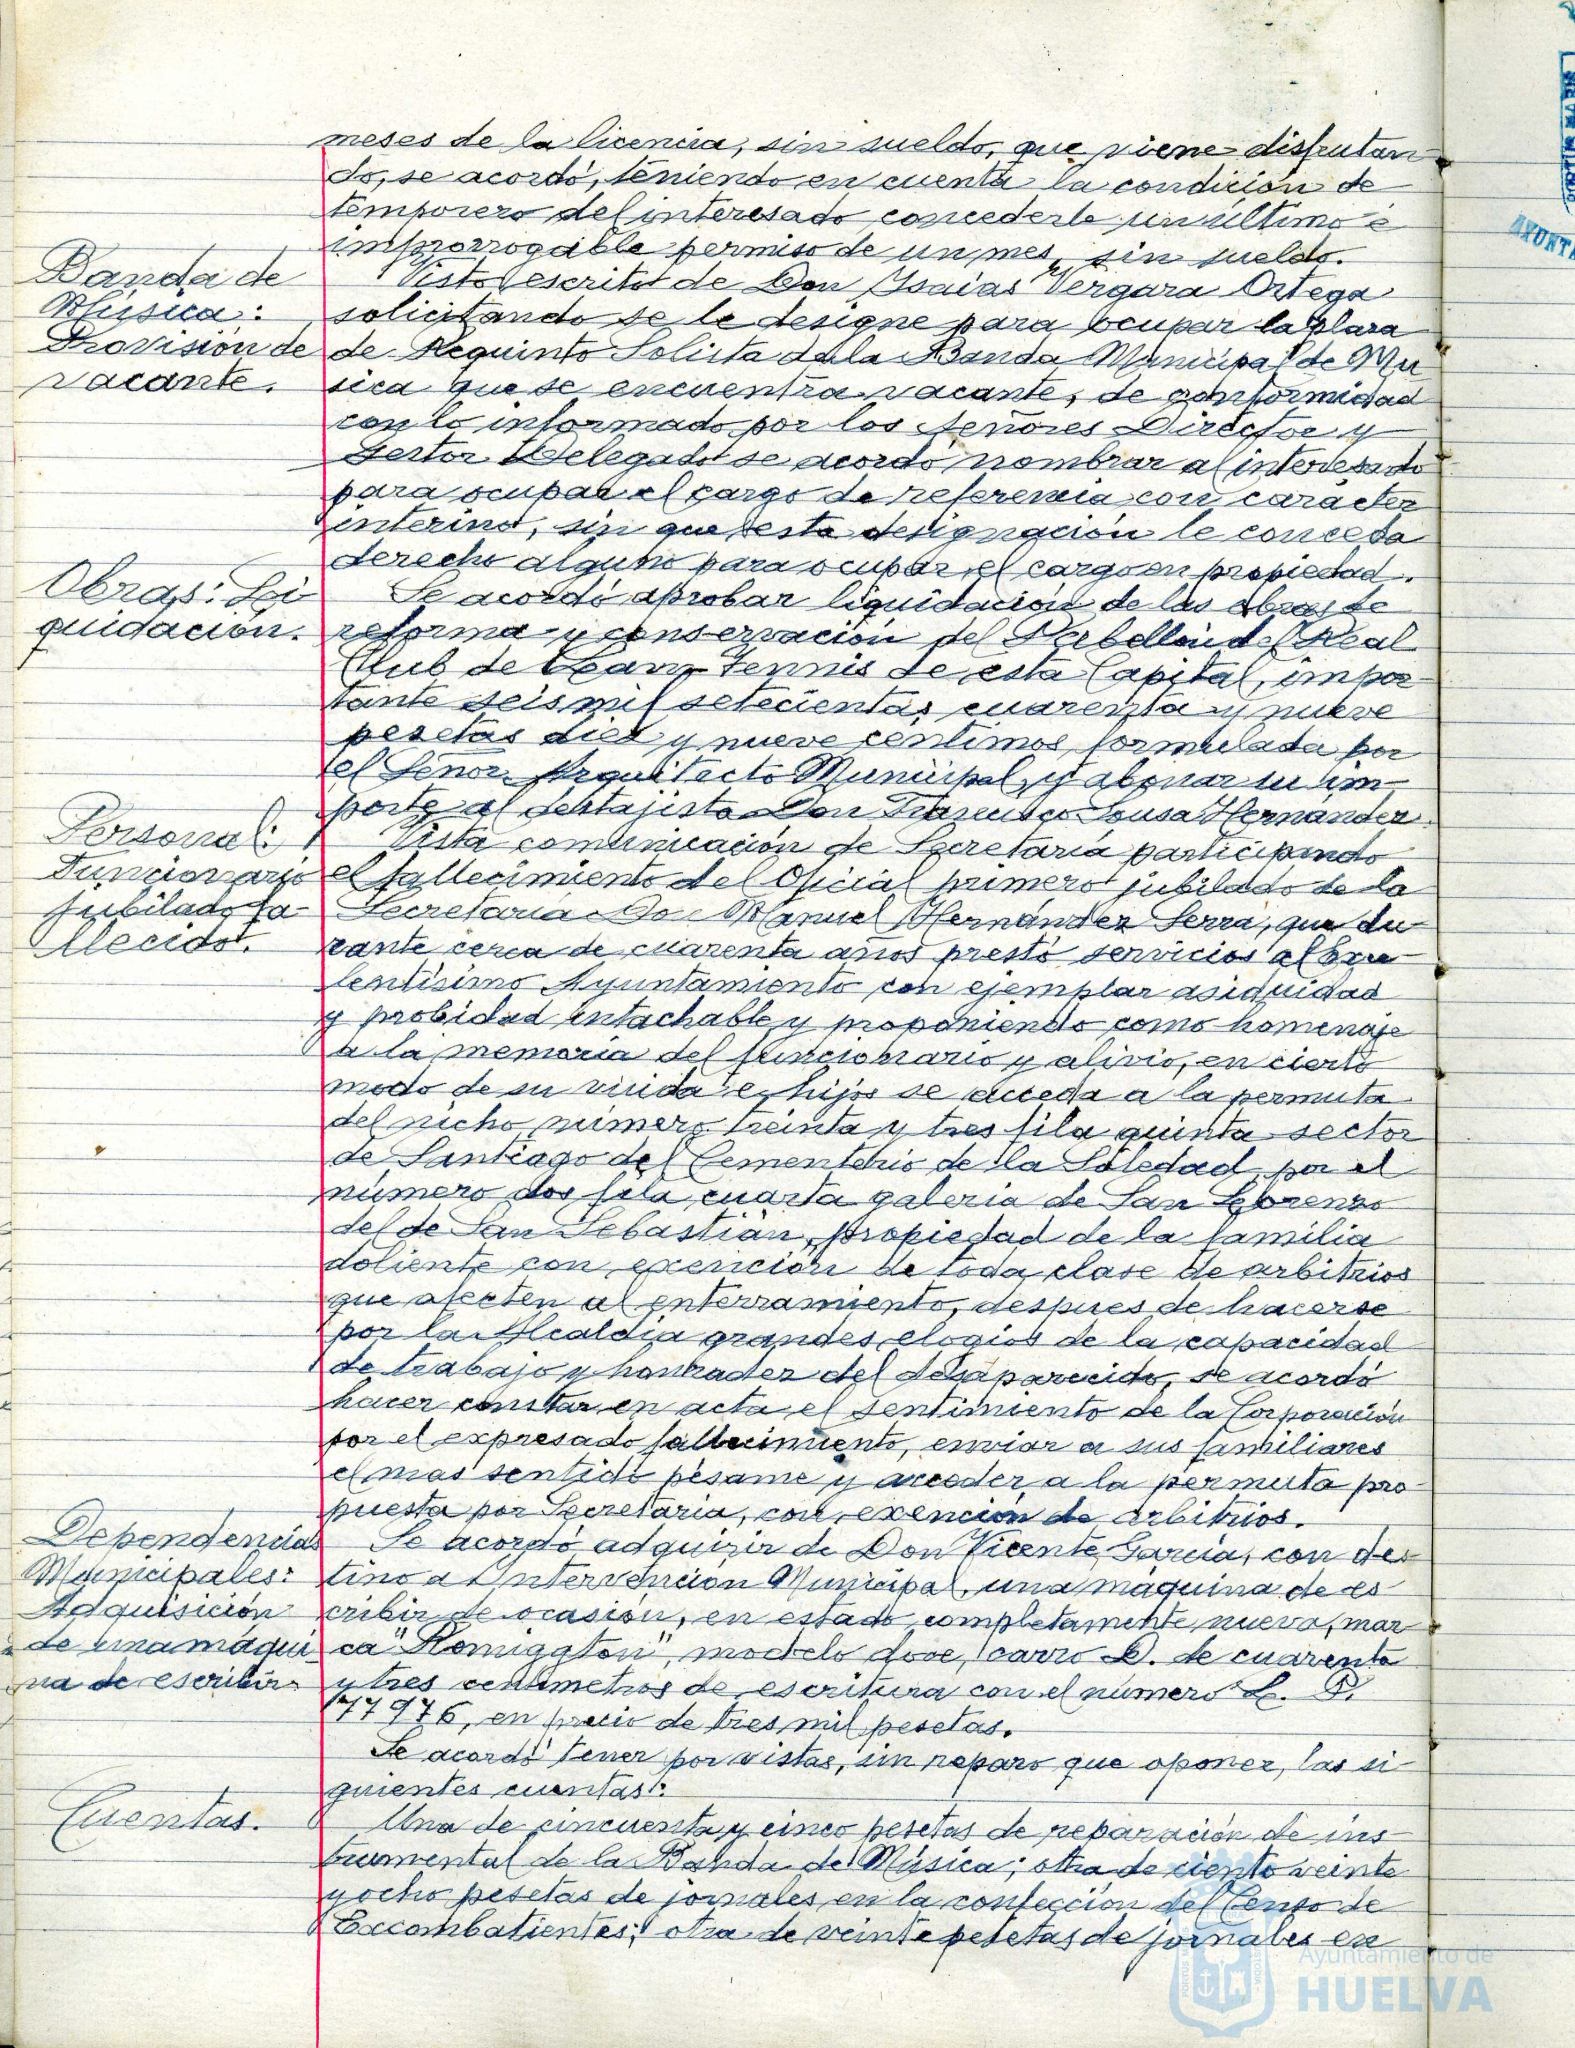 meses de la licencia, sin sueldo, que viene disfrutan
do, se acordó, teniendo en cuenta la condición de
temporero del interesado concederle un último é
improrrogable permiso de un mes, sin sueldo.
Banda de
Música:
Provisión de
vacante.
Visto escrito de Don Isaías Vergara Ortega
solicitando se le designe para ocupar la plaza
de Requinto Solista de la Banda Municipal de Mú
sica que se encuentra vacante, de conformidad
con lo informado por los Señores Director y
Gestor Delegado se acordó nombrar al interesado
para ocupar el cargo de referencia con carácter
interino, sin que esta designación le conceda
derecho alguno para ocupar el cargo en propiedad.
Obras: Li
quidación.
Se acordó aprobar liquidación de las obras de
reforma y conservación del Pabellón del Real
Club de Lawn Tennis de esta Capital, impor
tante seis mil setecientas cuarenta y nueve
pesetas diez y nueve céntimos, formulada por
el Señor Arquitecto Municipal, y abonar su im
porte al destajista Don Francisco Sousa Hernández.
Personal:
Funcionario
jubilado fa-
llecido.
Vista comunicación de Secretaría participando
el fallecimiento del Oficial primero jubilado de la
Secretaría Don Manuel Hernández Serra, que du
rante cerca de cuarenta años prestó servicios al Exce
lentísimo Ayuntamiento con ejemplar asiduidad
y probidad intachable y proponiendo como homenaje
a la memoria del funcionario y alivio, en cierto
modo de su viuda e hijos se acceda a la permuta
del nicho número treinta y tres fila quinta sector
de Santiago del Cementerio de la Soledad por el
número dos fila cuarta galería de San Lorenzo
del de San Sebastián, propiedad de la familia
doliente con exención de toda clase de arbitrios
que afecten al enterramiento, despues de hacerse
por la Alcaldía grandes elogios de la capacidad
de trabajo y honradez del desaparecido, se acordó
hacer constar en acta el sentimiento de la Corporación
por el expresado fallecimiento, enviar a sus familiares
el mas sentido pésame y acceder a la permuta pro
puesta por Secretaría, con exención de arbitrios.
Dependencias
Municipales:
Adquisición
de una máqui
na de escribir.
Se acordó adquirir de Don Vicente García, con des
tino a Intervención Municipal, una máquina de es
cribir de ocasión, en estado completamente nuevo, mar
ca "Romiggton", modelo doce, carro D. de cuarenta
y tres centímetros de escritura con el número L. P.
77976, en precio de tres mil pesetas.
Se acordó tener por vistas, sin reparo que oponer, las si
guientes cuentas:
Cuentas.
Una de cincuenta y cinco pesetas de reparación de ins
trumental de la Banda de Música; otra de ciento veinte
y ocho pesetas de jornales en la confección del Censo de
Excombatientes; otra de veinte pesetas de jornales en
Ayuntamiento de
HUELVA